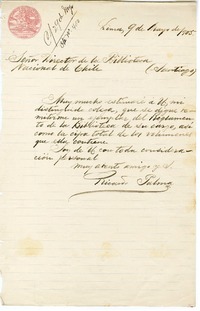 Lima, 9 de Mayo de 1905
Señor Director de la Biblioteca
Nacional de Chile
(Santiago)
Muy mucho estimaré a U, mi
distinguido colega, que se digne re-
mitirme un ejemplar del Reglamen-
to de la Biblioteca de su cargo, así
como la cifra total de los volúmenes
que ella contiene.
Soy de U. con toda considera-
ción personal
muy atento amigo y S.
Ricardo Palma